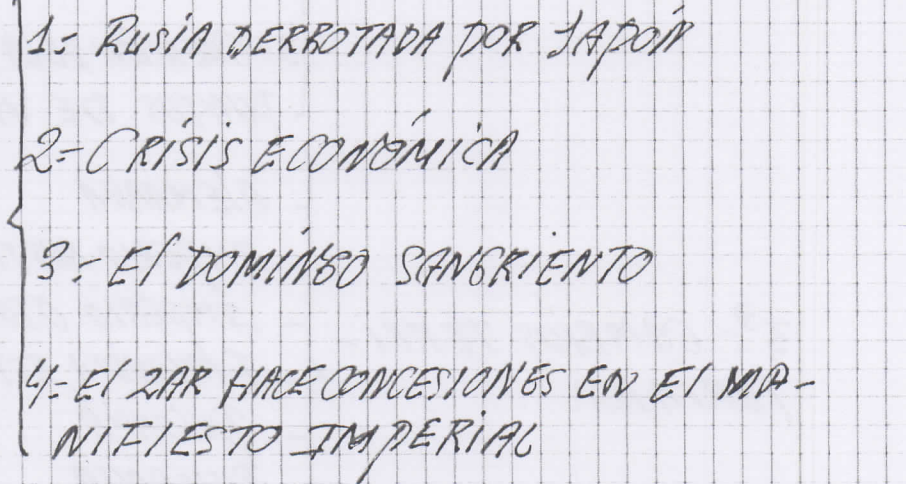 1= RUSIA DERROTADA POR JAPÓN
2= CRÍSIS ECONÓMICA
3= El DOMINGO SANGRIENTO
4= El ZAR HACE CONCESIONES EN El MA-
NIFIESTO IMPERIAL